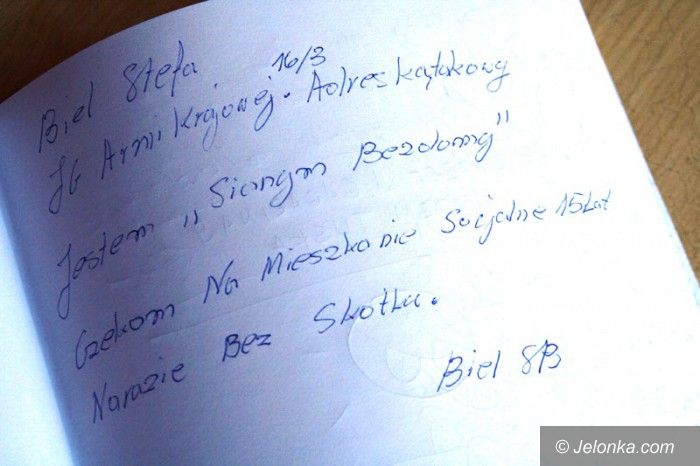 Biel Stefa
16/3
JG Armi Krajowej. Adres kątakowy
Jestem „Sianym Bezdomy"
Czekam Na Mieszkanie Socjalne 15 Lat
Narazie Bez Skutku.
Biel SB
© Jelonka.com